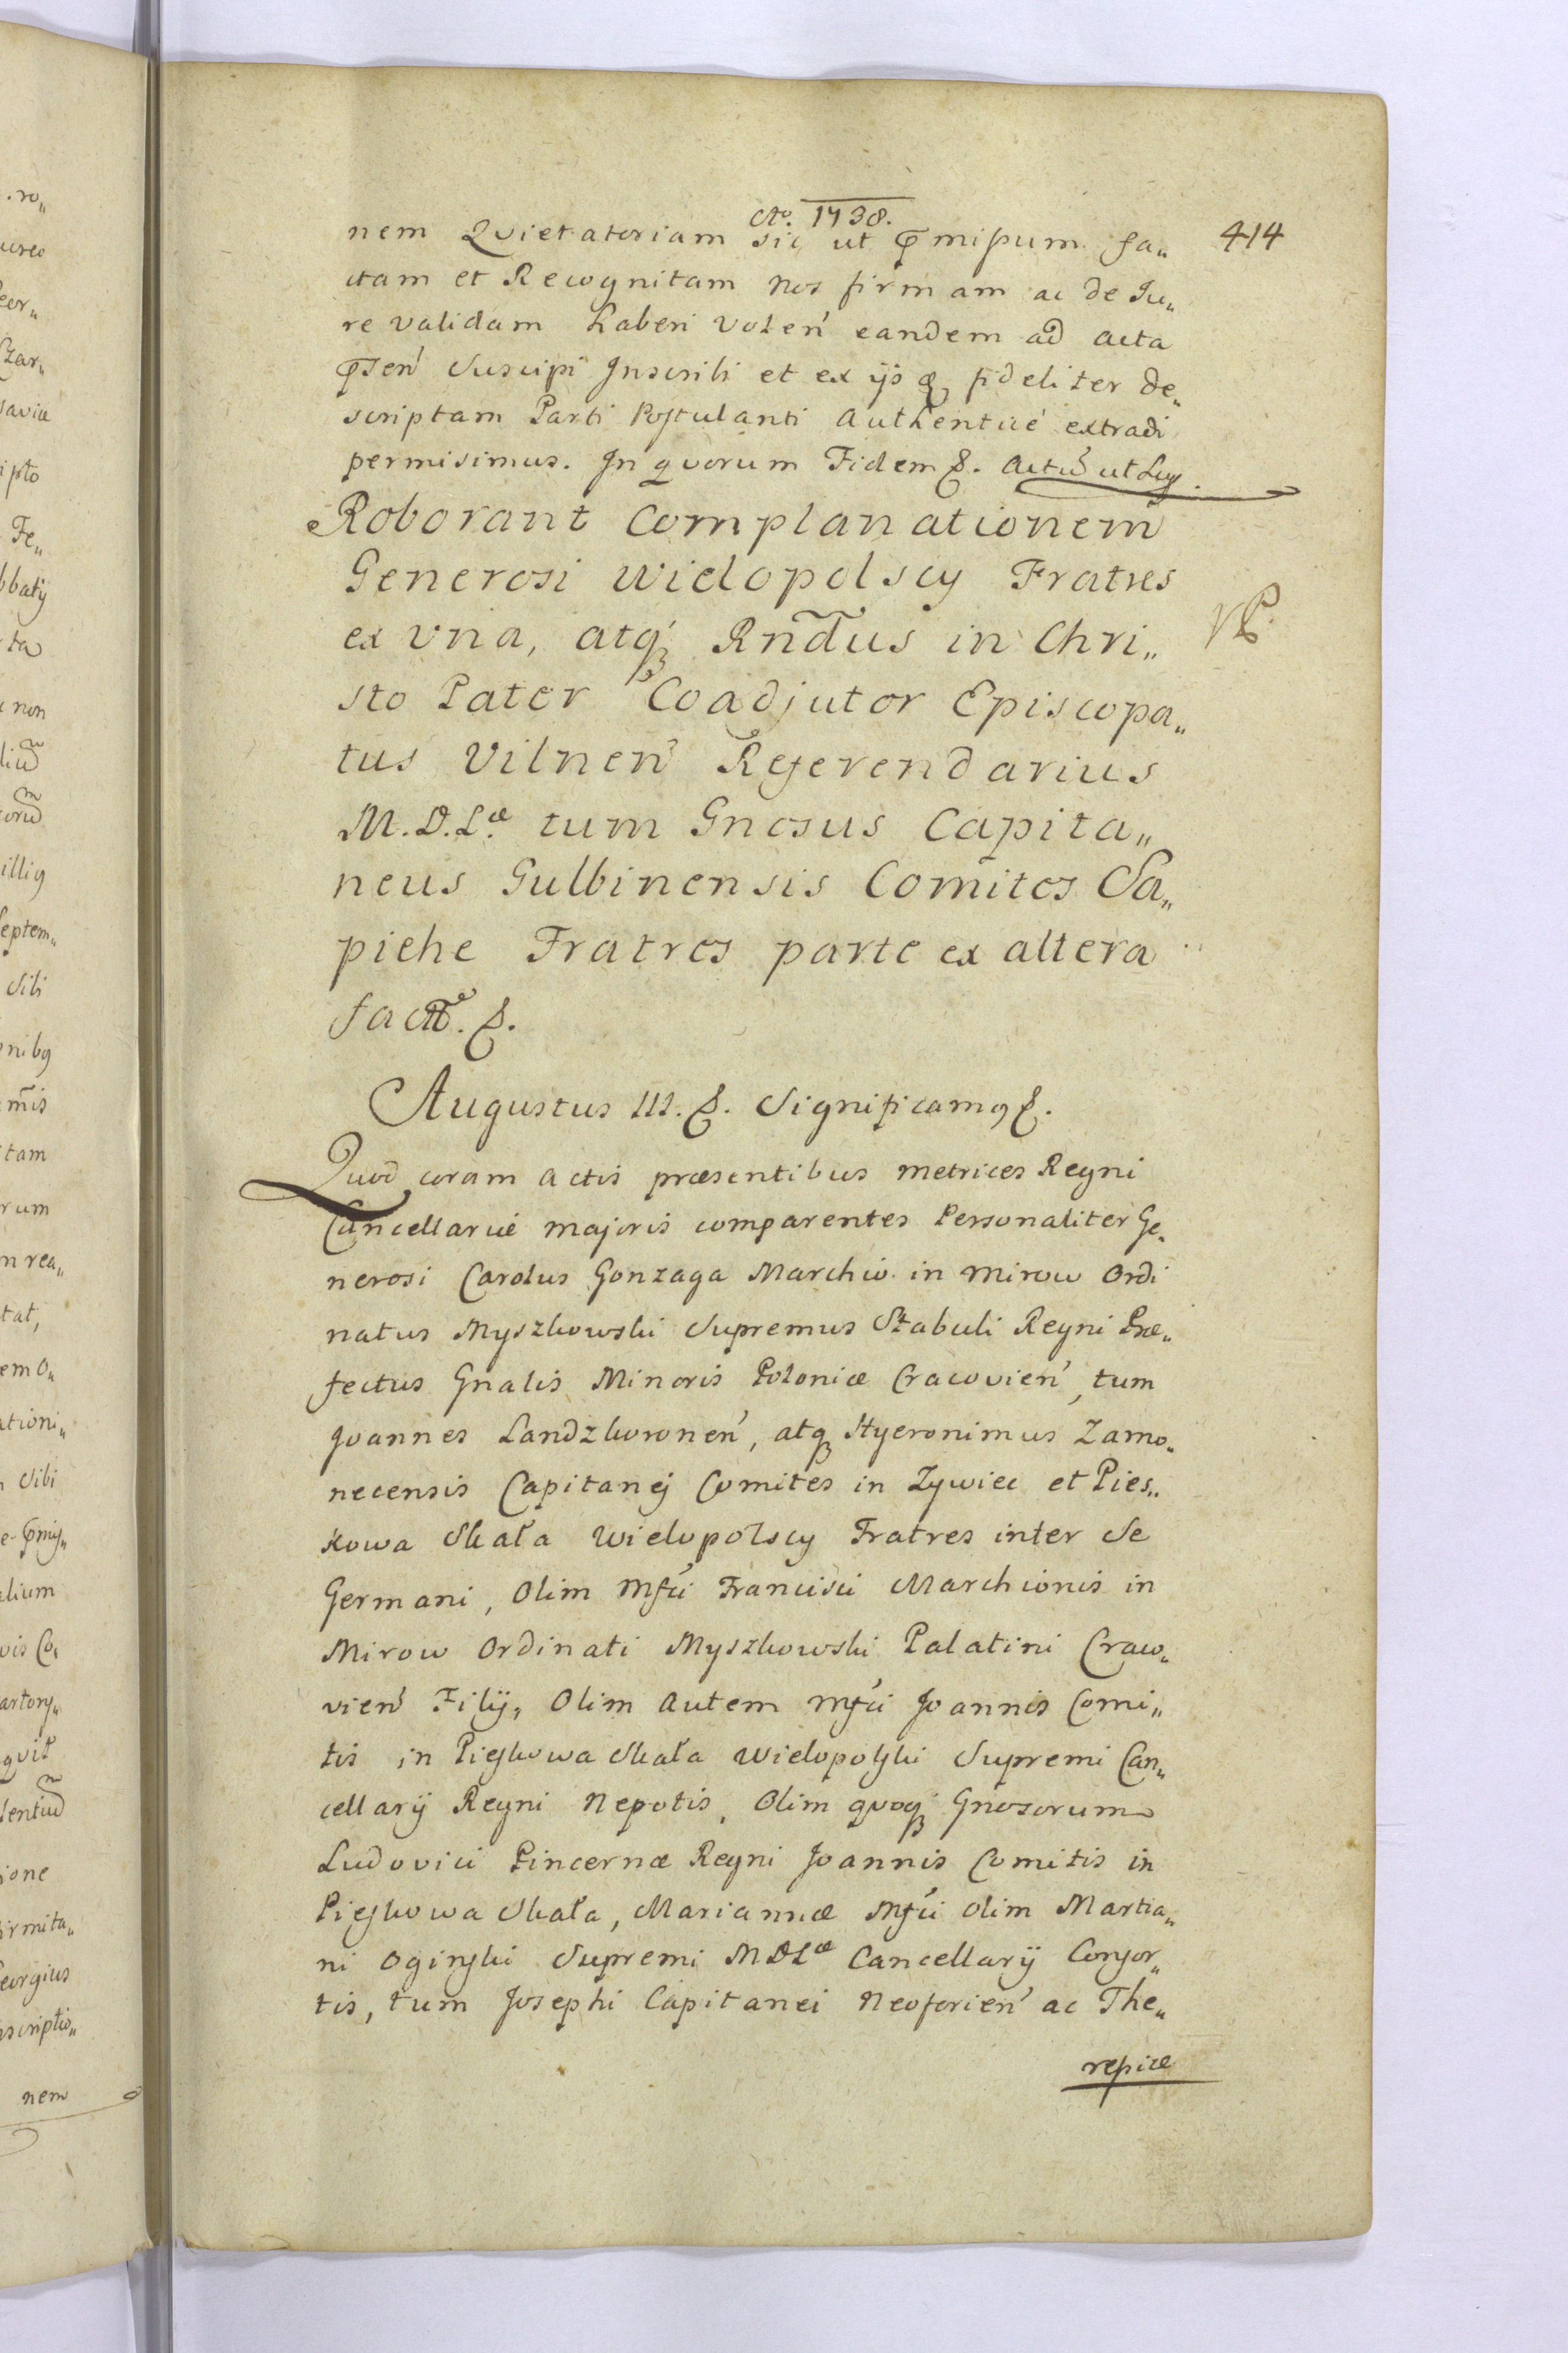 Ao. 1738.
414
nem Quietatoriam sic, ut pmissum fa„
ctam et Recognitam nos firmam ac de Ju„
re validam haberi volen̛ eandem ad Acta
psen̛ Suscipi Inscribi et ex ijs fideliter de„
scriptam Parti Postulanti Authentice extradi
permisimus. In quorum Fidem &. Actũ ut Sup.
Roborant Complanationem
Generosi Wielopolscy Fratres
ex Una, atq; Rndus in Chri„
sto Pater Coadjutor Episcopa„
tus Vilnen̛ Referendarius
M.D.Læ tum Gnosus Capita„
neus Gulbinensis Comites Sa„
piehe Fratres parte ex altera
fact̃. &.
Augustus III. &. Significamg &.
Quod coram Actis præsentibus Metrices Regni
Cancellarie Majoris comparentes Personaliter Ge„
nerosi Carolus Gonzaga Marchio in Mirow Ordi
natus Myszkowski Supremus Stabuli Regni Præ„
fectus Gnalis Minoris Poloniæ Cracovien̛, tum
Joannes Landzkoronen̛, atq; Hyeronimus Zarno„
necensis Capitanej Comites in Zywiec et Pies„
kowa Skała Wielopolscy Fratres inter Se
Germani, Olim Mfci Francisci Marchionis in
Mirow Ordinati Myszkowski Palatini Craco„
vien̛ Filij, Olim Autem Mfci Joannis Comi„
tis in Pieskowa Skała Wielopolski Supremi Can„
cellarij Regni Nepotis, Olim quoq; Gnosorum
Ludovici Pincernæ Regni Joannis Comitis in
Pieskowa Skała, Mariannæ Mfci olim Martia„
ni Oginski Supremi MDLæ Cancellarij Consor„
tis, tum Josephi Capitanei Neoforien̛ ac The„
resiæ